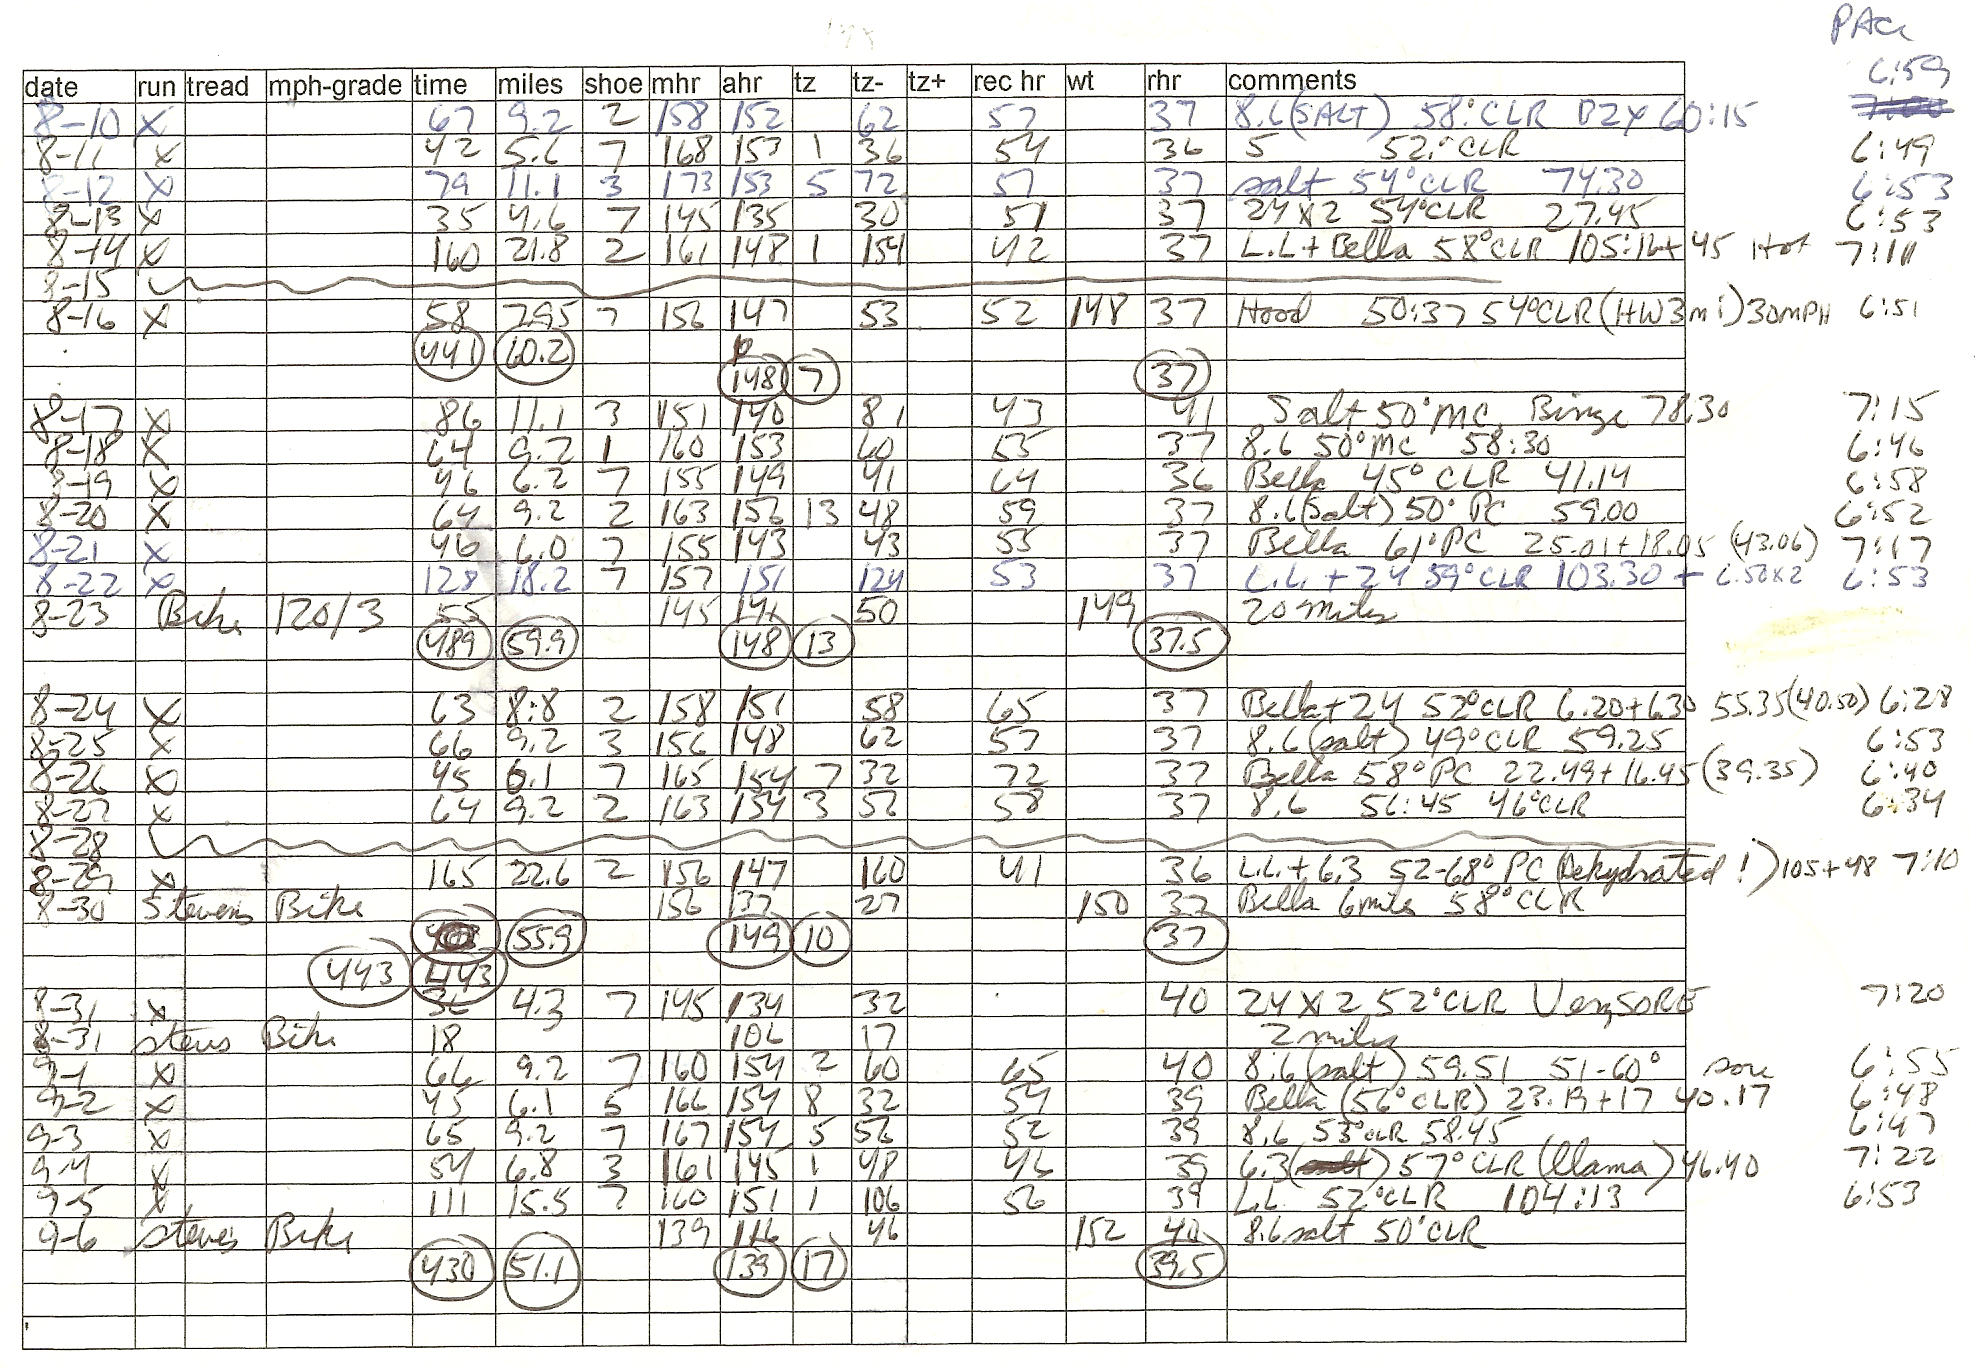 PACE
6:59
date run tread mph-grade time miles shoe mhr ahr tz tz- tz+ rec hr wt rhr comments
8-10 X 67 9.2 2 158 152 62 57 37 8.6 (SALT) 58° CLR 60:15
8-11 X 42 5.6 7 168 153 1 36 54 36 5 52° CLR 6:49
8-12 X 79 11.1 3 173 153 5 72 57 37 salt 54° CLR 74.30 6:53
8-13 X 35 4.6 7 145 135 30 51 37 24 X 2 54° CLR 27.45 6:53
8-14 X 160 21.8 2 161 148 1 154 42 37 L.L + Bella 58° CLR 105:16 + 45 Hot 7:11
8-15
8-16 X 58 7.95 7 156 147 53 52 148 37 Hood 50:37 54° CLR (HW 3 mi) 30 MPH 6:51
441 60.2
148 7 37
8-17 X 86 11.1 3 151 140 81 43 41 Salt 50° MC, Binge 78.30 7:15
8-18 X 64 9.2 1 160 153 60 55 37 8.6 50° MC 58:30 6:46
8-19 X 46 6.2 7 155 149 41 64 36 Bella 45° CLR 41.14 6:58
8-20 X 64 9.2 2 163 156 13 48 59 37 8.6 (salt) 50° PC 59.00 6:52
8-21 X 46 6.0 7 155 143 43 55 37 Bella 61° PC 25.01 + 18.05 (43.06) 7:17
8-22 X 128 18.2 7 157 151 124 53 37 L.L. + 24 59° CLR 103.30 + 6.50 x 2 6:53
8-23 Bike 120/3 55 145 50 149 20 miles
489 59.9 148 13 37.5
8-24 X 63 8.8 2 158 151 58 65 37 Bella + 24 52° CLR 6.20 + 6.30 55.35 (40.50) 6:28
8-25 X 66 9.2 3 156 148 62 57 37 8.6 (salt) 49° CLR 59.25 6:53
8-26 X 45 6.1 7 165 154 7 32 72 37 Bella 58° PC 22.49 + 16.45 (39.35) 6:40
8-27 X 64 9.2 2 163 154 3 56 58 37 8.6 56:45 46° CLR 6:34
8-28
8-29 X 165 22.6 2 156 147 160 41 36 L.L. + 6.3 52-68° PC (Dehydrated!) 105 + 48 7:10
8-30 Stevens Bike 156 137 27 150 37 Bella 6 miles 58° CLR
55.9 149 10 37
443 443
8-31 X 36 4.3 7 145 134 32 40 24 X 2 52° CLR Very SORE 7:20
8-31 Bike 18 106 17 2 miles
9-1 X 66 9.2 7 160 154 2 60 65 40 8.6 (salt) 59.51 51-60° sore 6:55
9-2 X 45 6.1 5 166 154 8 32 54 39 Bella (56° CLR) 23.19 + 17 40.17 6:48
9-3 X 65 9.2 7 167 154 5 56 52 39 8.6 53° CLR 58.45 6:47
9-4 X 54 6.8 3 161 145 1 48 46 39 6.3 (salt) 57° CLR (llama) 46.40 7:22
9-5 X 111 15.5 7 160 151 1 106 56 39 L.L. 52° CLR 104:13 6:53
9-6 Bike 139 116 46 152 40 8.6 salt 50° CLR
430 51.1 139 17 39.5